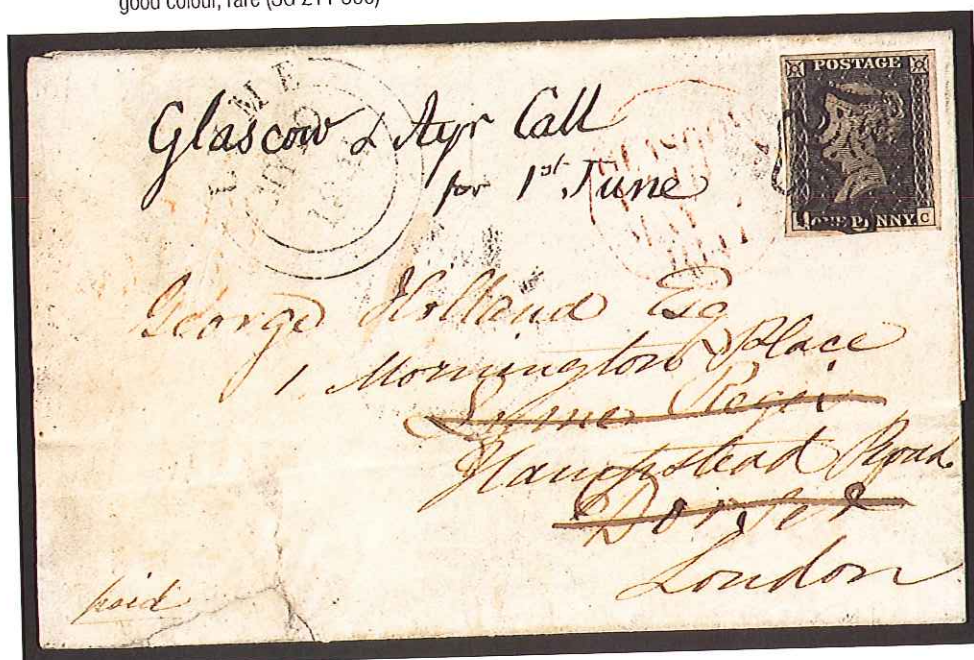 good colour, rare (SG £11 000)
LYME
Glascow & Ayr Call
for 1st June
POSTAGE
ONE PENNY. C
George Holland Esq
1 Mornington Place
Lyme Regis
Hampstead Road
Dorset
London
paid